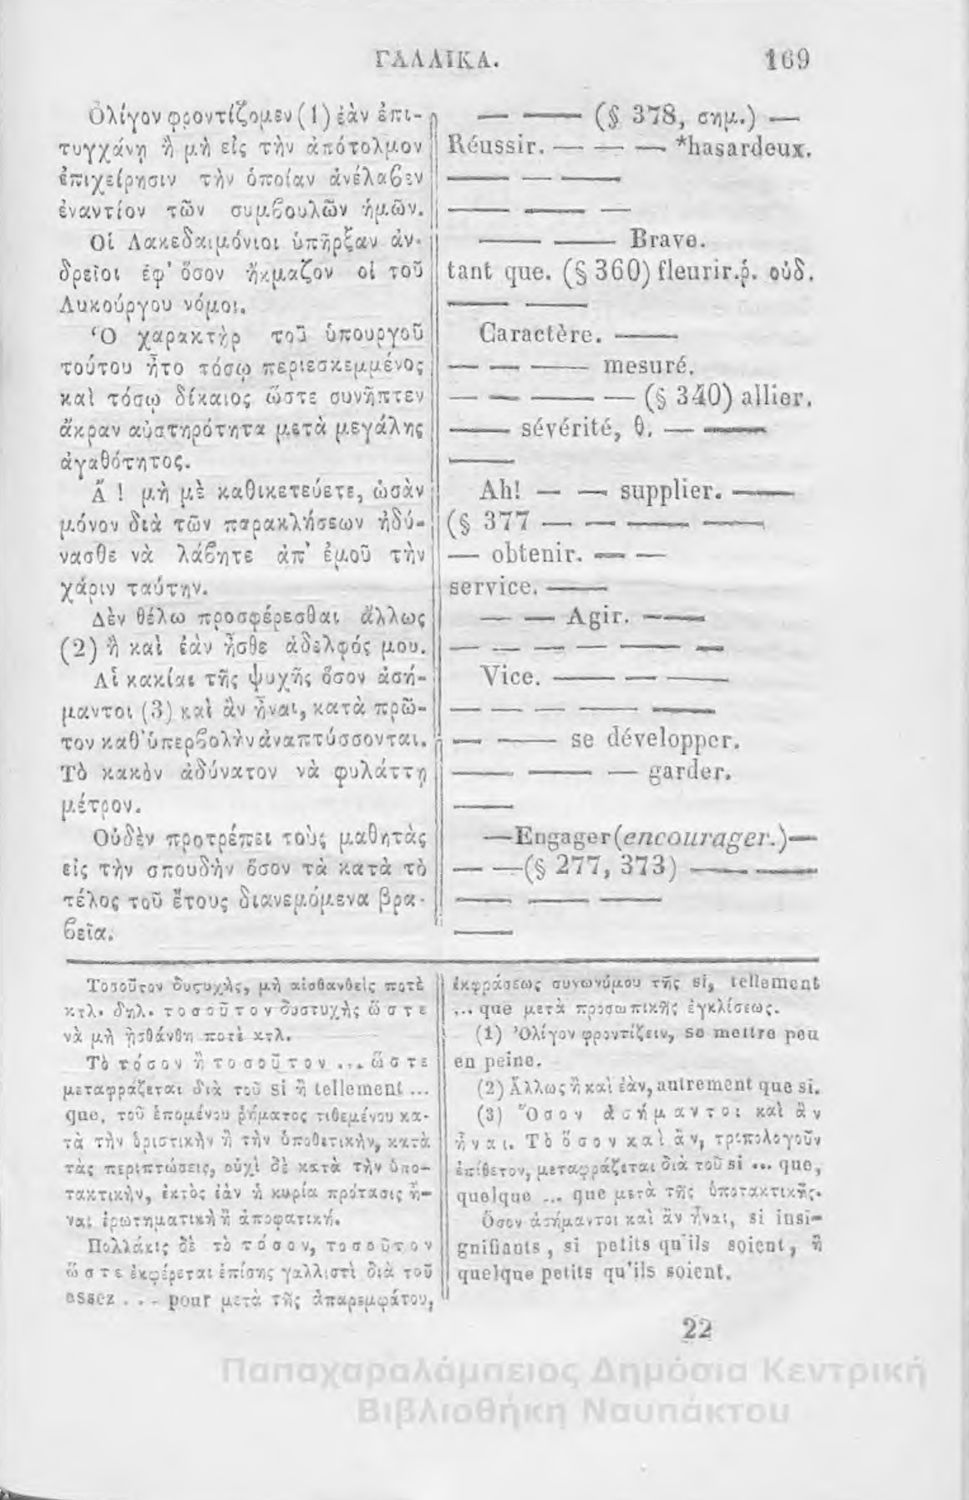 ΓΑΛΛΙΚΑ. 169
Ὀλίγον φροντίζομεν (1) ἐὰν ἐπι-
τυγχάνῃ ἢ μὴ εἰς τὴν ἀπότολμον
ἐπιχείρησιν τὴν ὁποίαν ἀνέλαβεν
ἐναντίον τῶν συμβουλῶν ἡμῶν.
Οἱ Λακεδαιμόνιοι ὑπῆρξαν ἀν-
δρεῖοι ἐφ’ ὅσον ἤκμαζον οἱ τοῦ
Λυκούργου νόμοι.
Ὁ χαρακτὴρ τοῦ ὑπουργοῦ
τούτου ἦτο τόσῳ περιεσκεμμένος
καὶ τόσῳ δίκαιος ὥστε συνῆπτεν
ἄκραν αὐστηρότητα μετὰ μεγάλης
ἀγαθότητος.
Ἆ ! μὴ μὲ καθικετεύετε, ὡσὰν
μόνον διὰ τῶν παρακλήσεων ἠδύ-
νασθε νὰ λάβητε ἀπ’ ἐμοῦ τὴν
χάριν ταύτην.
Δὲν θέλω προσφέρεσθαι ἄλλως
(2) ἢ καὶ ἐὰν ἦσθε ἀδελφός μου.
Αἱ κακίαι τῆς ψυχῆς ὅσον ἀσή-
μαντοι (3) καὶ ἂν ἦναι, κατὰ πρῶ-
τον καθ’ ὑπερβολὴν ἀναπτύσσονται.
Τὸ κακὸν ἀδύνατον νὰ φυλάττῃ
μέτρον.
Οὐδὲν προτρέπει τοὺς μαθητὰς
εἰς τὴν σπουδὴν ὅσον τὰ κατὰ τὸ
τέλος τοῦ ἔτους διανεμόμενα βρα-
βεῖα.
— — (§ 378, σημ.) —
Réussir. — — — *hasardeux.
— — —
— — —
— — Brave.
tant que. (§ 360) fleurir. ῥ. οὐδ.
— —
Caractère. —
— — — mesuré.
— — — — (§ 340) allier.
— sévérité, θ. — —
—
Ah! — — supplier. —
(§ 377 — — — —
— obtenir. — —
service. —
— — Agir. —
— — — — — —
Vice. — — —
— — — — —
— — se développer.
— — — garder.
—
— Engager (encourager.) —
— — (§ 277, 373) — —
— — —
—
Τοσοῦτον δυςυχὴς, μὴ αἰσθανθεὶς ποτὲ
κτλ. δηλ. τοσοῦτον δυστυχὴς ὥστε
νὰ μὴ ᾐσθάνθη ποτὲ κτλ.
Τὸ τόσον ἢ τοσοῦτον ... ὥστε
μεταφράζεται διὰ τοῦ si ἢ tellement ...
que, τοῦ ἑπομένου ῥήματος τιθεμένου κα-
τὰ τὴν ὁριστικὴν ἢ τὴν ὑποθετικὴν, κατὰ
τὰς περιπτώσεις, οὐχὶ δὲ κατὰ τὴν ὑπο-
τακτικὴν, ἐκτὸς ἐὰν ἡ κυρία πρότασις ἦ-
ναι ἐρωτηματικὴ ἢ ἀποφατική.
Πολλάκις δὲ τὸ τόσον, τοσοῦτον
ὥστε ἐκφέρεται ἐπίσης γαλλιστὶ διὰ τοῦ
assez ... pour μετὰ τῆς ἀπαρεμφάτου,
ἐκφράσεως συνωνύμου τῆς si, tellement
... que μετὰ προσωπικῆς ἐγκλίσεως.
(1) Ὀλίγον φροντίζειν, se mettre peu
en peine.
(2) Ἄλλως ἢ καὶ ἐὰν, autrement que si.
(3) Ὅσον ἀσήμαντοι καὶ ἂν
ἦναι. Τὸ ὅσον καὶ ἂν, τροπολογοῦν
ἐπίθετον, μεταφράζεται διὰ τοῦ si ... que,
quelque ... que μετὰ τῆς ὑποτακτικῆς.
Ὅσον ἀσήμαντοι καὶ ἂν ἦναι, si insi-
gnifiants, si petits qu'ils soient, ἢ
quelque petits qu'ils soient.
22
Παπαχαραλάμπειος Δημόσια Κεντρική
Βιβλιοθήκη Ναυπάκτου